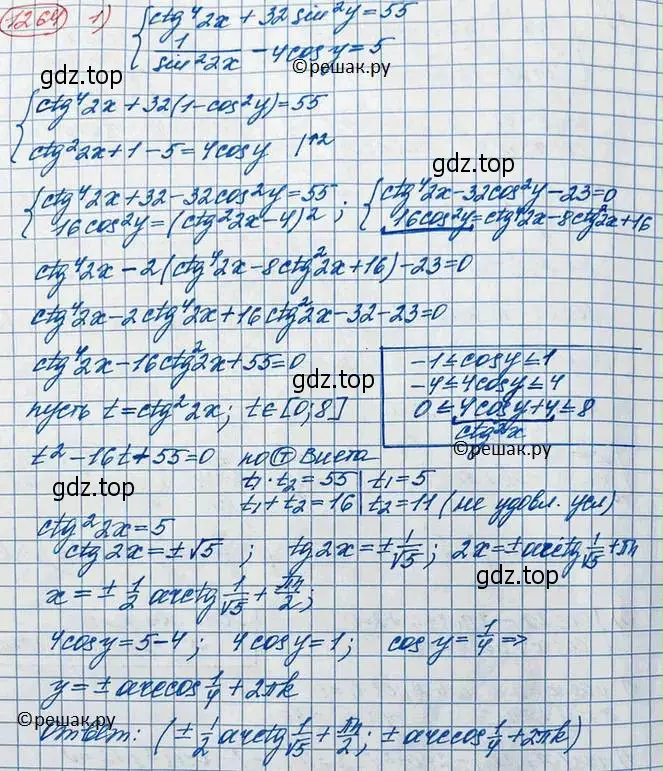 1264 1) { ctg⁴2x + 32 sin²y = 55
1/sin²2x − 4cos y = 5
gdz.top
©решак.ру
{ ctg⁴2x + 32(1−cos²y) = 55
ctg²2x + 1 − 5 = 4cos y |↑2
gdz.top
gdz.top
{ ctg⁴2x + 32 − 32cos²y = 55 ; { ctg⁴2x − 32cos²y − 23 = 0
16cos²y = (ctg²2x − 4)² 16cos²y = ctg⁴2x − 8ctg²2x + 16
ctg⁴2x − 2(ctg⁴2x − 8ctg²2x + 16) − 23 = 0
ctg⁴2x − 2ctg⁴2x + 16ctg²2x − 32 − 23 = 0
ctg⁴2x − 16ctg²2x + 55 = 0
−1 ≤ cos y ≤ 1
−4 ≤ 4cos y ≤ 4
0 ≤ 4cos y + 4 ≤ 8
ctg²x
пусть t = ctg²2x; t ∈ [0; 8]
gdz.top
©решак.ру
t² − 16t + 55 = 0 по Т Виета
t₁ · t₂ = 55 | t₁ = 5
t₁ + t₂ = 16 | t₂ = 11 (не удовл. усл)
gdz.top
ctg²2x = 5
ctg2x = ±√5 ; tg2x = ±1/√5 ; 2x = ±arctg 1/√5 + πn
gdz.top
x = ± 1/2 arctg 1/√5 + πn/2 ;
4cos y = 5−4 ; 4cos y = 1 ; cos y = 1/4 =>
gdz.top
y = ± arccos 1/4 + 2πk
©решак.ру
Ответ: (± 1/2 arctg 1/√5 + πn/2 ; ± arccos 1/4 + 2πk)